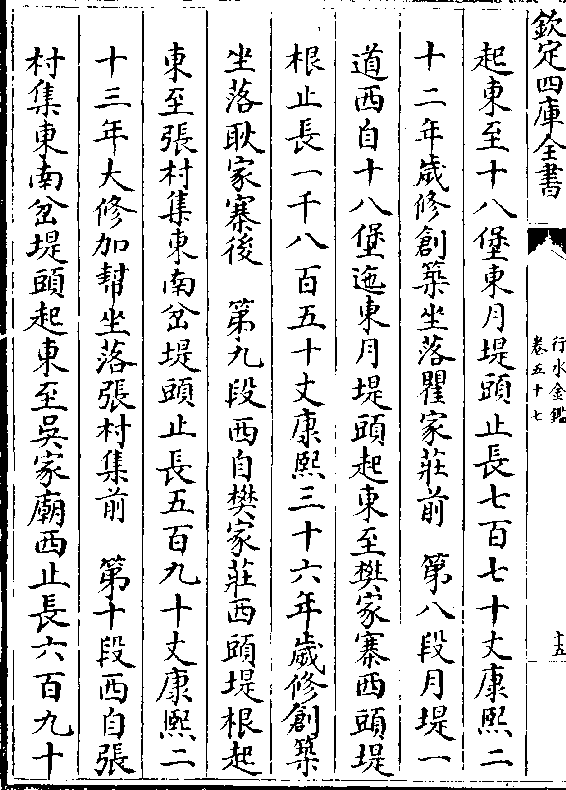 欽定四庫全書
行水金鑑
卷五十七
十五
起東至十八堡東月堤頭止長七百七十丈康熙二
十二年歲修創築坐落瞿家莊前　第八段月堤一
道西自十八堡迤東月堤頭起東至樊家寨西頭堤
根止長一千八百五十丈康熙三十六年歲修創築
坐落耿家寨後　第九段西自樊家莊西頭堤根起
東至張村集東南岔堤頭止長五百九十丈康熙二
十三年大修加幫坐落張村集前　第十段西自張
村集東南岔堤頭起東至吳家廟西止長六百九十